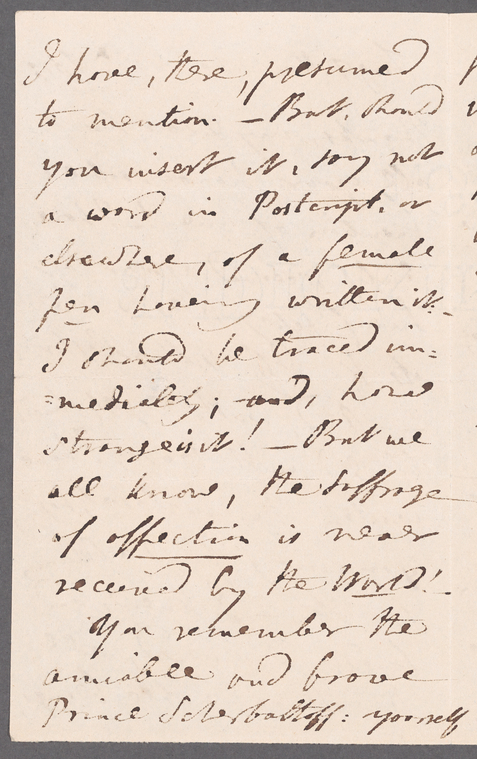 I have, there, presumed
to mention. — But, should
you insert it, say not
a word in Postcript, or
elsewhere, of a female
pen having written it. —
I should be traced im=
=mediately; and, how
strange is it! — But we
all know, the Suffrage
of affection is never
received by the World! —
You remember the
amiable and brave
Prince Scherbattoff: yourself